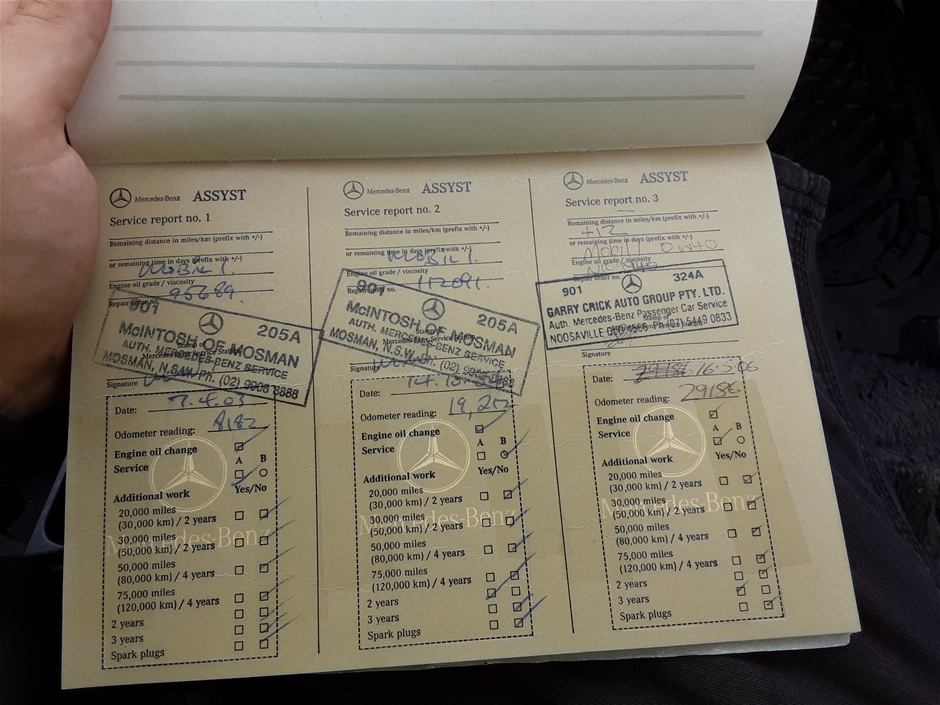 Mercedes-Benz ASSYST
Service report no. 1
Remaining distance in miles/km (prefix with +/-)
or remaining time in days (prefix with +/-)
MOBIL 1.
Engine oil grade / viscosity
95689.
Repair order no.
901
205A
McINTOSH OF MOSMAN
AUTH. MERCEDES-BENZ SERVICE
MOSMAN, N.S.W. PH. (02) 9906 8888
Signature
Date: 7.4.03
Odometer reading: 8182
Engine oil change
A B
Service
Yes/No
Additional work
20,000 miles
(30,000 km) / 2 years
30,000 miles
(50,000 km) / 2 years
50,000 miles
(80,000 km) / 4 years
75,000 miles
(120,000 km) / 4 years
2 years
3 years
Spark plugs
Mercedes-Benz
Mercedes-Benz ASSYST
Service report no. 2
Remaining distance in miles/km (prefix with +/-)
or remaining time in days (prefix with +/-)
MOBIL 1.
Engine oil grade / viscosity
112091.
Repair order no.
901
205A
McINTOSH OF MOSMAN
AUTH. MERCEDES-BENZ SERVICE
MOSMAN, N.S.W. PH. (02) 9906 8888
Signature
Date:
Odometer reading: 19,212
Engine oil change
A B
Service
Yes/No
Additional work
20,000 miles
(30,000 km) / 2 years
30,000 miles
(50,000 km) / 2 years
50,000 miles
(80,000 km) / 4 years
75,000 miles
(120,000 km) / 4 years
2 years
3 years
Spark plugs
Mercedes-Benz
Mercedes-Benz ASSYST
Service report no. 3
Remaining distance in miles/km (prefix with +/-)
412
or remaining time in days (prefix with +/-)
Mobil 0W40
Engine oil grade / viscosity
901
324A
GARRY CRICK AUTO GROUP PTY. LTD.
Auth. Mercedes-Benz Passenger Car Service
NOOSAVILLE QLD 4566 Ph (07) 5449 0833
Signature
Date: 29186 16-5-06
Odometer reading: 29186
Engine oil change
A B
Service
Yes/No
Additional work
20,000 miles
(30,000 km) / 2 years
30,000 miles
(50,000 km) / 2 years
50,000 miles
(80,000 km) / 4 years
75,000 miles
(120,000 km) / 4 years
2 years
3 years
Spark plugs